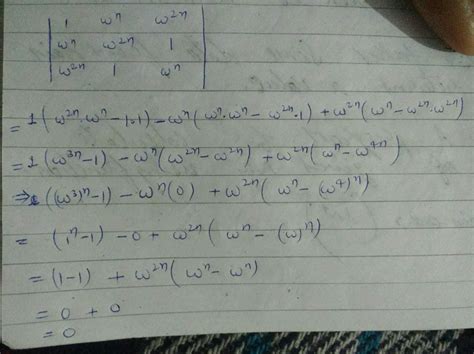 | 1 ωⁿ ω²ⁿ |
| ωⁿ ω²ⁿ 1 |
| ω²ⁿ 1 ωⁿ |
= 1(ω²ⁿ·ωⁿ - 1·1) - ωⁿ(ωⁿ·ωⁿ - ω²ⁿ·1) + ω²ⁿ(ωⁿ - ω²ⁿ·ω²ⁿ)
= 1(ω³ⁿ - 1) - ωⁿ(ω²ⁿ - ω²ⁿ) + ω²ⁿ(ωⁿ - ω⁴ⁿ)
⇒ ((ω³)ⁿ - 1) - ωⁿ(0) + ω²ⁿ(ωⁿ - (ω⁴)ⁿ)
= (1ⁿ - 1) - 0 + ω²ⁿ(ωⁿ - (ω)ⁿ)
= (1-1) + ω²ⁿ(ωⁿ - ωⁿ)
= 0 + 0
= 0